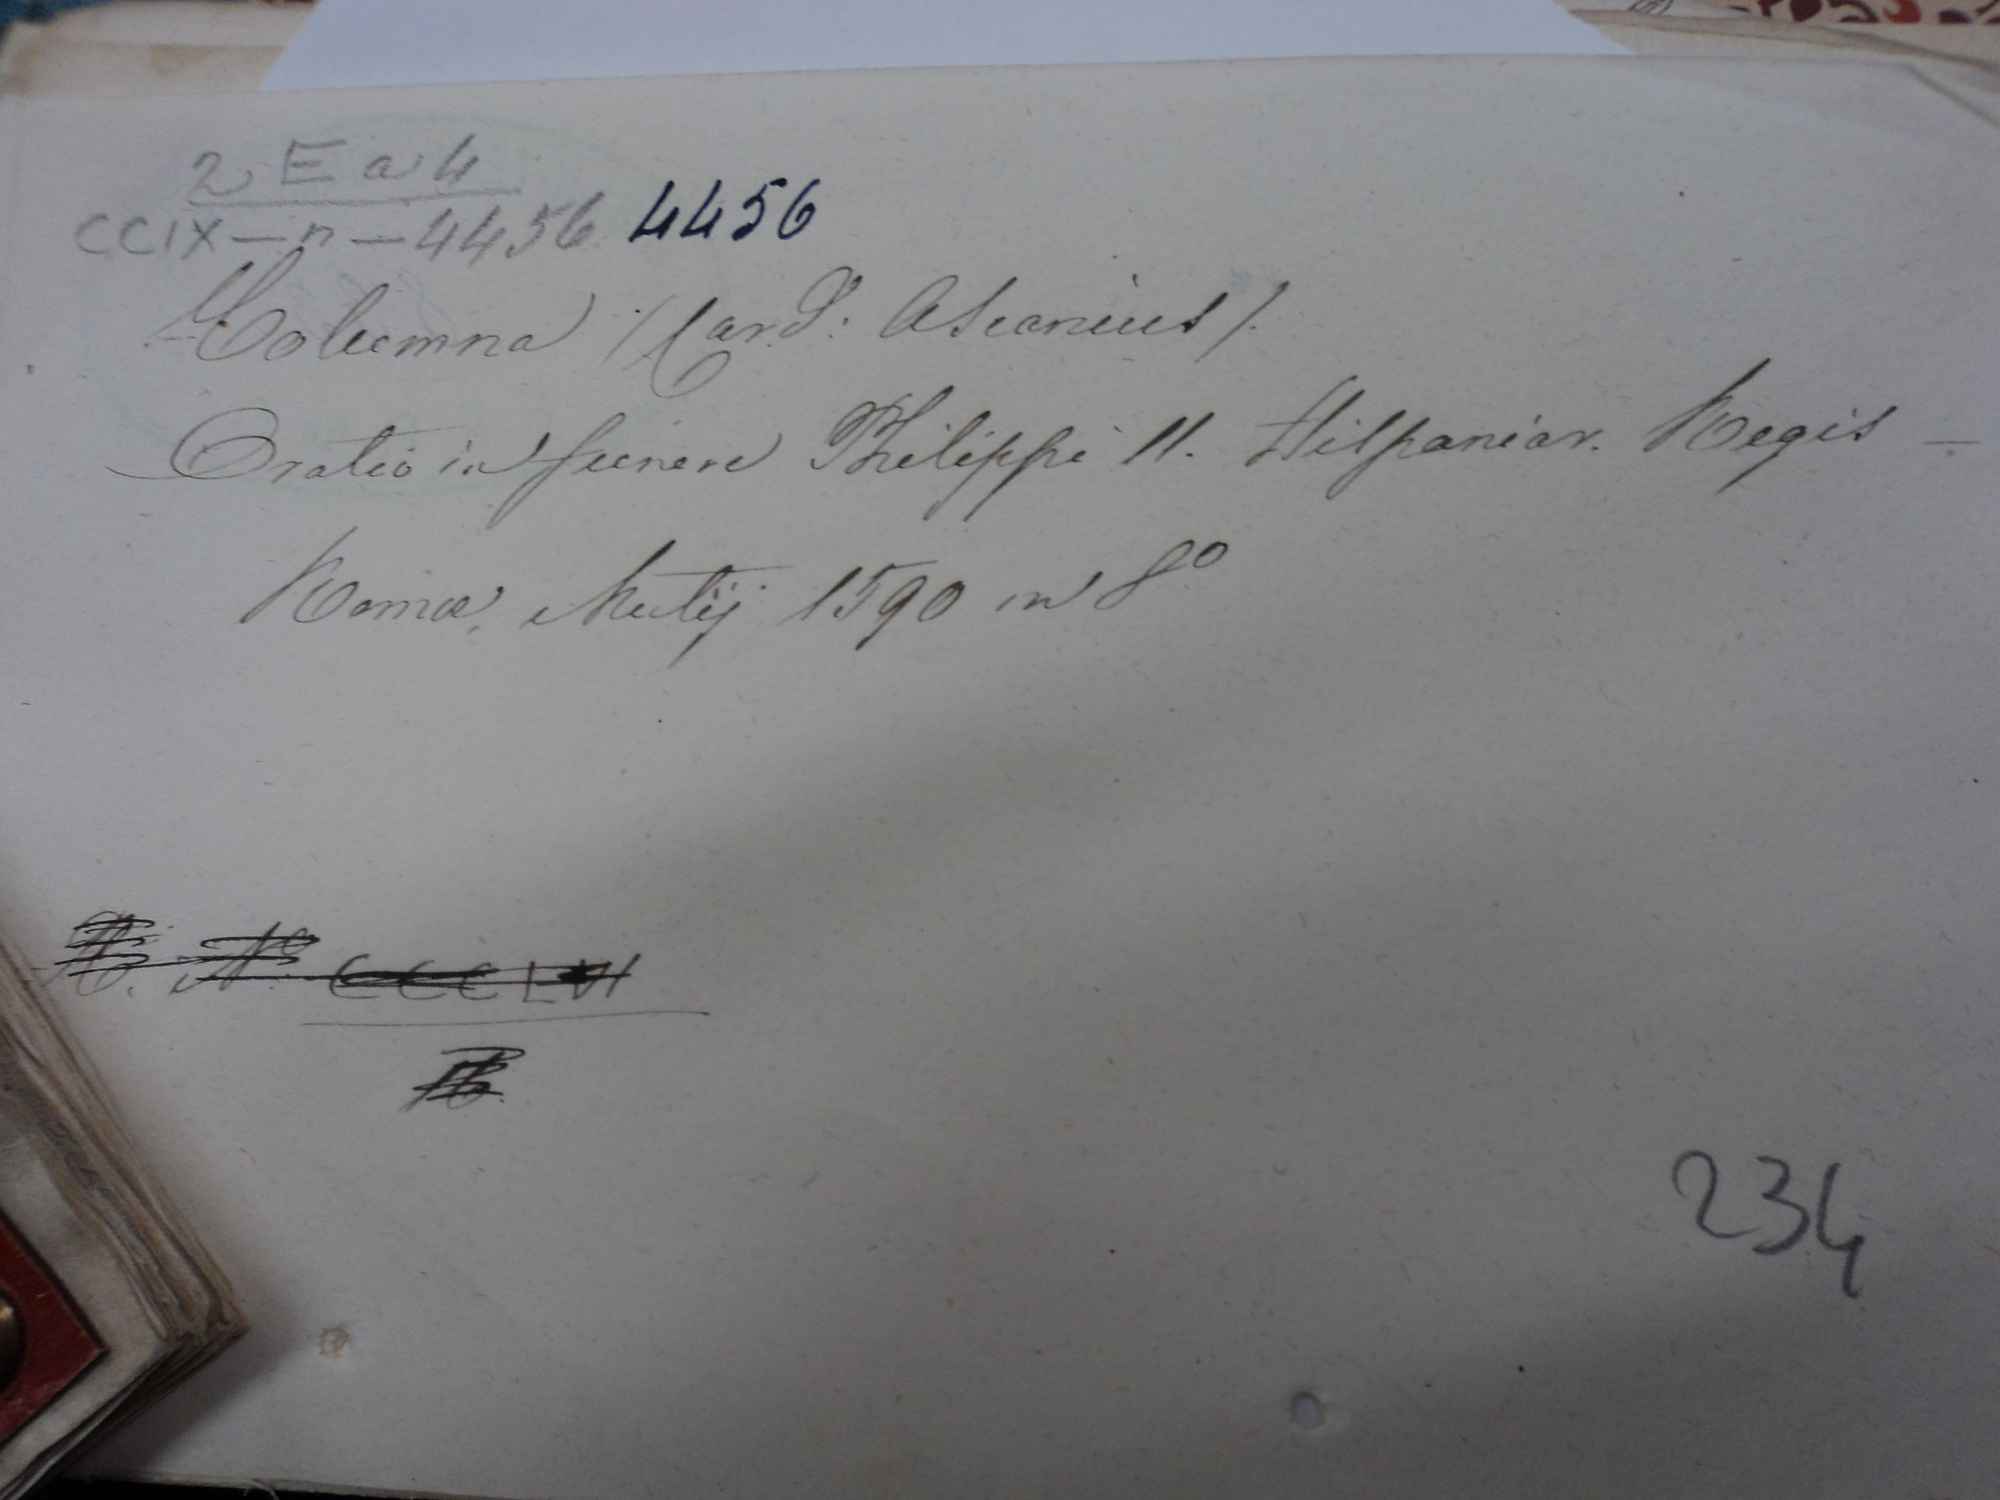 2 E a 4
CCIX - n - 4456 4456
Columna /Card: Ascanius/.
Oratio in funere Philippi II. Hispaniar. Regis -
Romæ, Mutij 1590 in 8º
Nº CCCLVI
234